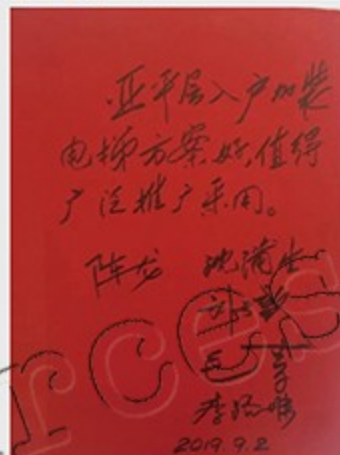 亚平层入户加装
电梯方案好,值得
广泛推广采用。
陈龙 沈蒲生
李
2019.9.2
rces